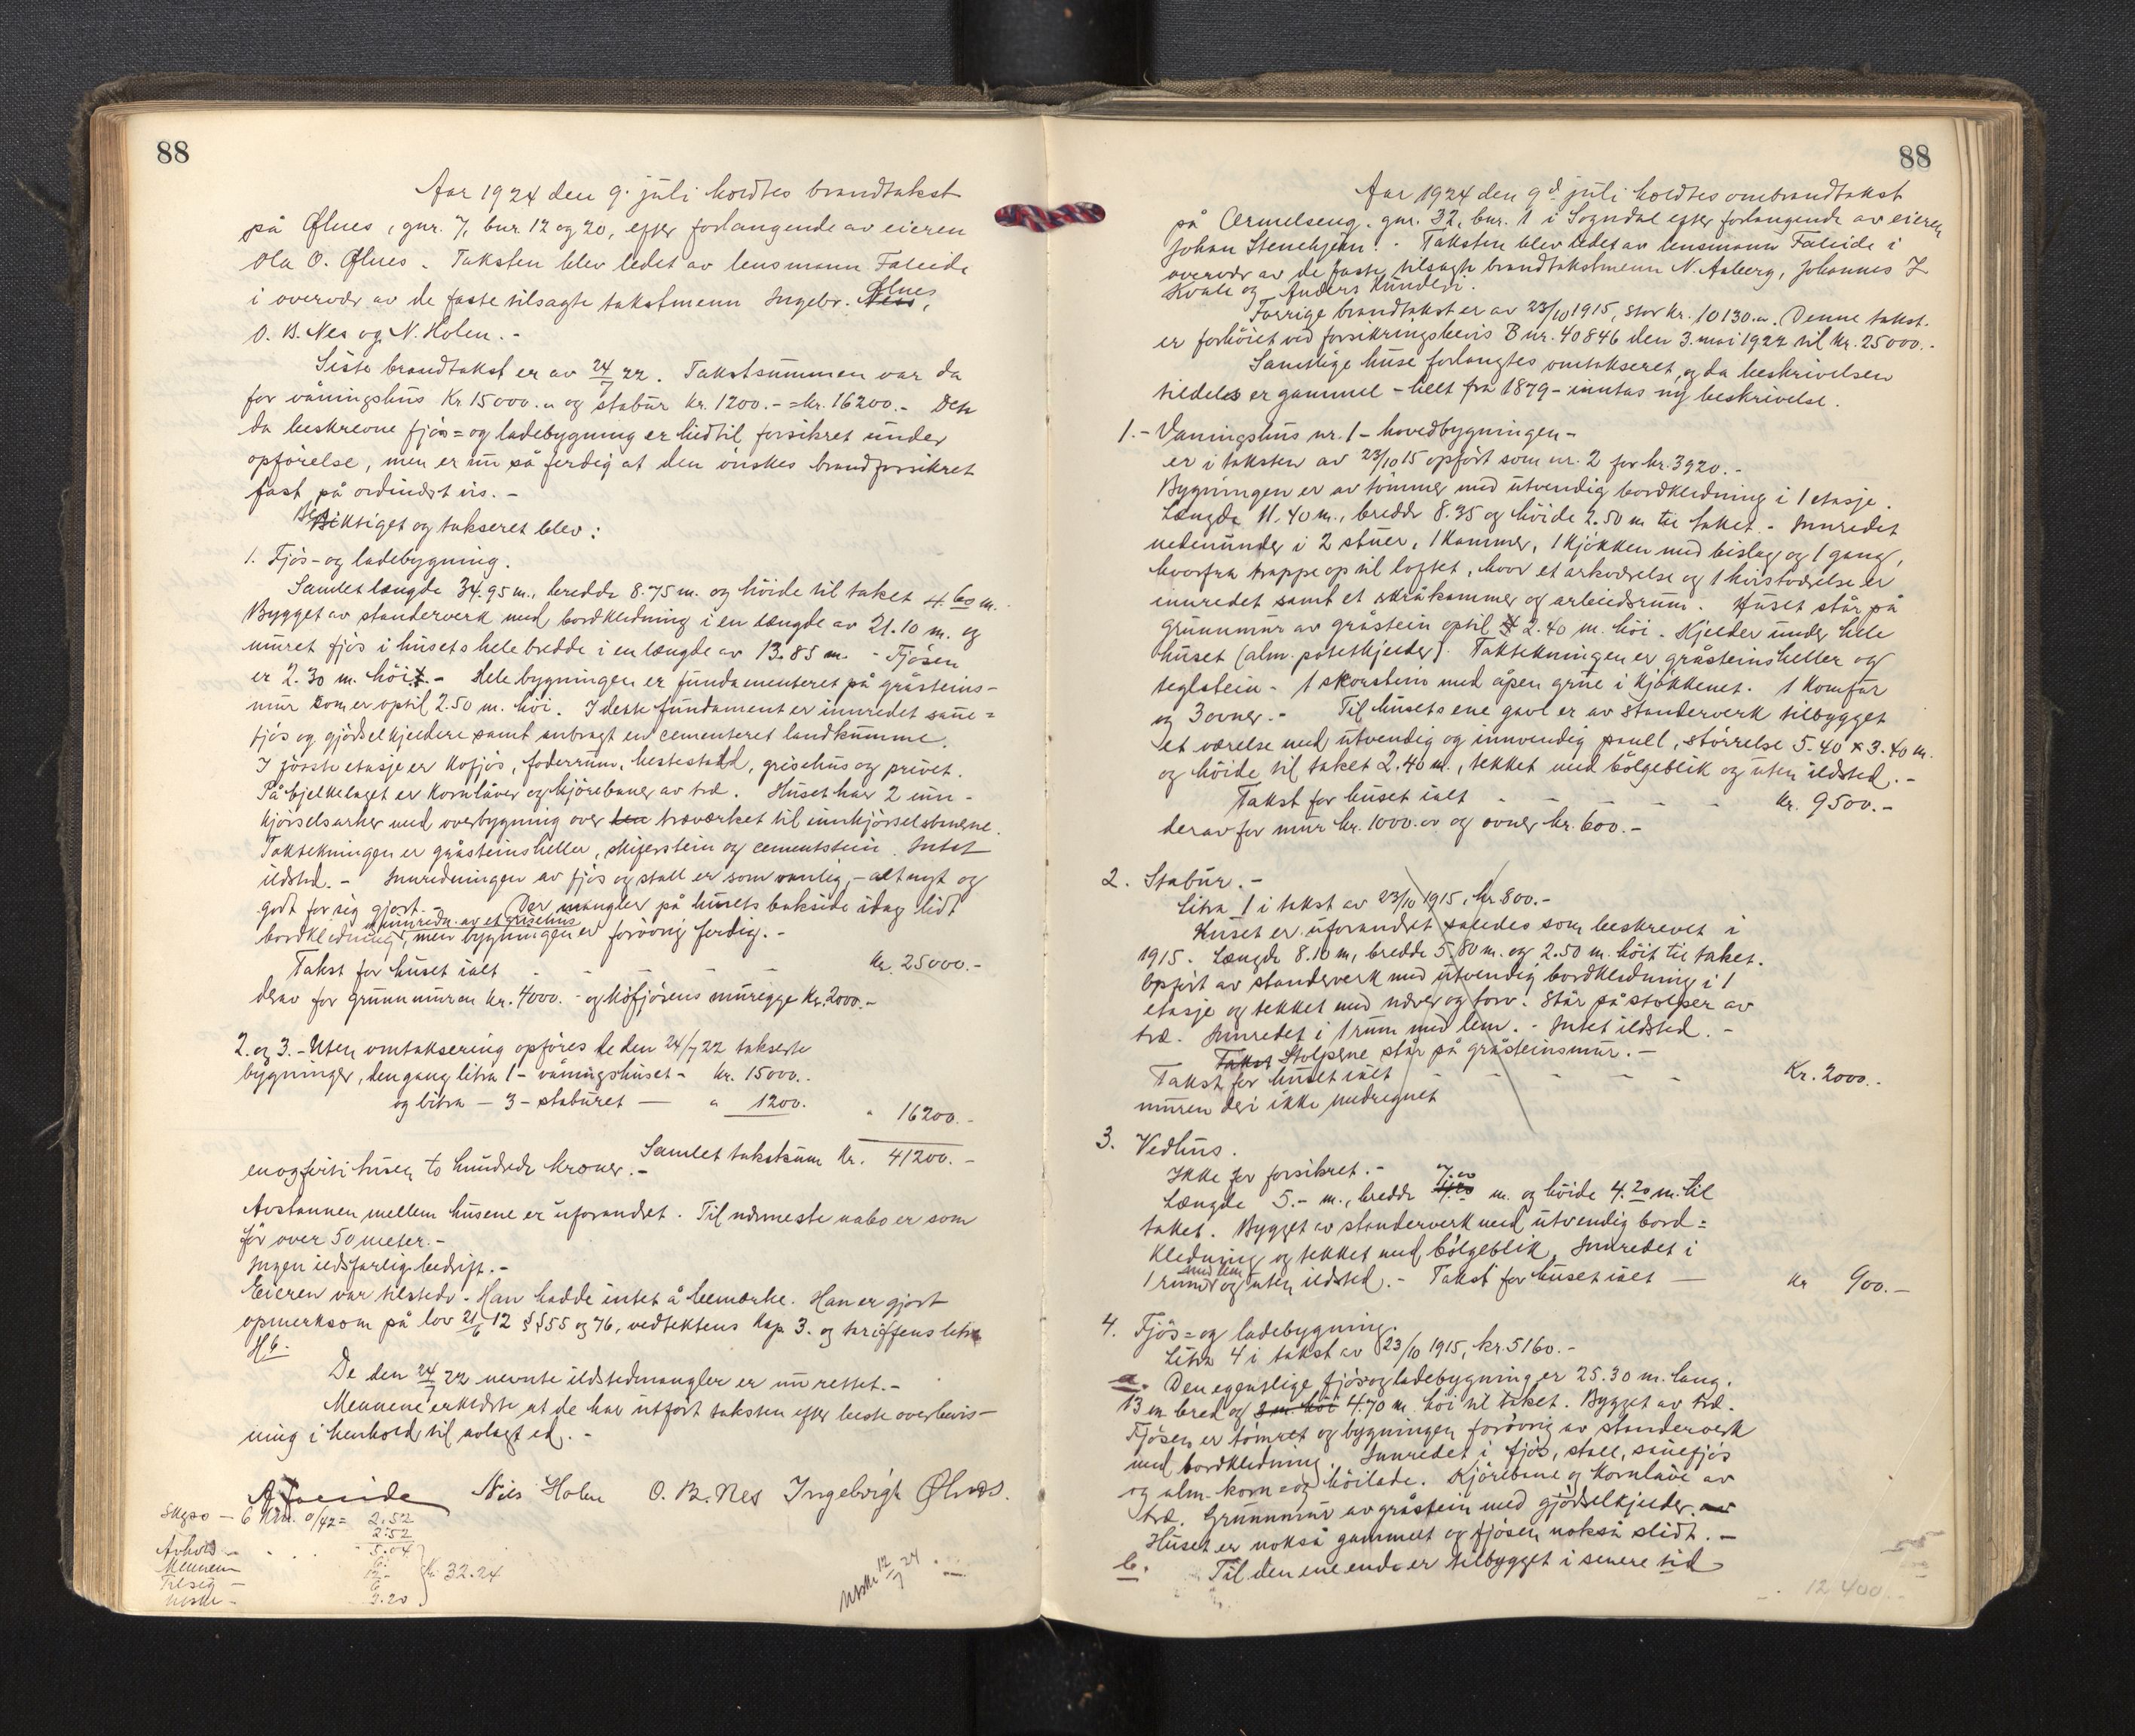 88
Aar 1924 den 9. juli holdtes brandtakst
på Ølnes, gnr. 7, bnr 12 og 20, efter forlangende av eieren
Ola O. Ølnes. Taksten blev ledet av lensmann Faleide
i overvær av de faste tilsagte takstmenn Ingebr. Ness, Ølnes
O. B. Nes og N. Holen. -
Siste brandtakst er av 24/7 22. Takstsummen var da
for våningshus Kr 15000.- og stabur kr. 1200.- = kr. 16200.- Den
da beskrevne fjøs= og ladebygning er hidtil forsikret under
opførelse, men er nu så ferdig at den ønskes brandforsikret
fast på ordinært vis. -
Besiktiget og taksert blev:
1. Fjøs- og ladebygning.
Samlet længde 34.95 m., bredde 8.75 m. og höide til taket 4.60 m.
Bygget av standerverk med bordkledning i en længde av 21.10 m. og
muret fjøs i husets hele bredde i en længde av 13.85 m. - Fjøsen
er 2.30 m. höit. - Hele bygningen er fundamenteret på gråsteins-
mur som er optil 2.50 m. höi. I dette fundament er innredet saue=
fjøs og gjødselkjeldere samt anbragt en cementeret landkumme.
I første etasje er kofjøs, foderrum, hestestald, grisehus og privet.
På bjelkelaget er kornlåver og kjørebaner av træ. Huset har 2 inn-
kjørselsarker med overbygning over den træværket til innkjørselsbanene.
Taktekningen er gråsteinsheller, skiferstein og cementstein. Intet
ildsted. - Innredningen av fjøs og stall er som vanlig, - alt nyt og
godt for sig gjort. - Der mangler på husets bakside idag lidt
bordkledning, og innredn. av et grisehus men bygningen er forøvrig ferdig. -
Takst for huset ialt - - - - - Kr. 25000.-
derav for grunnmuren kr. 4000.- og kofjøsens murvegge Kr. 2000.-
2. og 3. - Uten omtaksering opføres de den 24/7 22 takserte
bygninger, den gang litra 1 - våningshuset - kr. 15000.-
og litra - 3 - staburet - " 1200. " 16200.-
Samlet takstsum Kr. 41200.-
en og firti tusen to hundrede kroner. -
Avstannen mellem husene er uforandret. Til nærmeste nabo er som
før over 50 meter. -
Ingen ildsfarlig bedrift. -
Eieren var tilstede. Han hadde intet å bemærke. Han er gjort
opmerksom på lov 21/6 12 §§ 55 og 76, vedtektens kap 3. og tariffens litra
H 6.
De den 24/7 22 nevnte ildstedmangler er nu rettet. -
Mennene erklærte at de har utført taksten efter beste overbevis-
ning i henhold til avlagt ed. -
A Faleide Nils Holen O. B. Nes Ingebrigt Ølnes.
Skyss - 6 Km. à/42 = 2.52
2.52
5.04
Mennene 12.-
Tilsig - 6
Utskr - 2.20
Kr 32.24
Utskr 12/7 24
88
Aar 1924 den 9d juli holdtes ombrandtakst
på Ormelseng, gnr. 32, bnr. 1 i Sogndal efter forlangende av eieren
Johan Stenehjem. - Taksten blev ledet av lensmann Faleide i
overvær av de faste tilsagte brandtakstmenn N. Aaberg, Johannes J.
Kvale og Anders Kundlev.
Forrige brandtakst er av 23/10 1915, stor kr. 10130.-. Denne takst
er forhöiet ved forsikringsbevis B nr. 40846 den 3. mai 1922 til kr. 25000.-
Samtlige huse forlangtes omtakseret, og da beskrivelsen
tildels er gammel - helt fra 1879 - inntas ny beskrivelse.
1. - Vaningshus nr. 1 - hovedbygningen -
er i taksten av 23/10 15 opført som nr. 2 for kr. 3920.-
Bygningen er av tømmer med utvendig bordkledning i 1 etasje.
Længde 11.40 m., bredde 8.35 og höide 2.50 m til taket. - Innredet
nedenunder i 2 stuer, 1 kammer, 1 kjøkken med bislag og 1 gang,
hvorfra trappe op til loftet, hvor et arkværelse og 1 kvistværelse er
innredet samt et skråkammer og arbeidsrum. Huset står på
grunnmur av gråstein optil 2.40 m. höi. Kjelder under hele
huset (alm. potetkjelder). Taktekningen er gråsteinsheller og
teglstein. - 1 skorstein med åpen grue i kjøkkenet. 1 Komfur
og 3 ovner. - Til husets ene gavl er av standerverk tilbygget
et værelse med utvendig og innvendig panel, størrelse 5.40 x 3.40 m.
og höide til taket 2.40 m., tekket med bölgeblik og uten ildsted. -
Takst for huset ialt - - - - - Kr. 9500.-
derav for mur kr. 1000.- og ovner kr. 600.-
2. Stabur. -
Litra 1 i takst av 23/10 1915, kr. 800.-
Huset er uforandret således som beskrevet i
1915. Længde 8.10 m, bredde 5.80 m. og 2.50 m. höit til taket.
Opført av standerverk med utvendig bordkledning i 1
etasje og tekket med næver og torv. Står på stolper av
træ. Innredet i 1 rum med lem. - Intet ildsted. -
Takst Stolpene står på gråsteinsmur. -
Takst for huset ialt - - - - - Kr. 2000.-
muren deri ikke medregnet
3. Vedhus.
Ikke før forsikret. -
Længde 5.- m., bredde 7.00 m. og höide 4.20 m. til
taket. Bygget av standerverk med utvendig bord=
kledning og tekket med bölgeblik. Innredet i
1 rum med lem og uten ildsted. - Takst for huset ialt - kr 900.-
4. Fjøs= og ladebygning.
Litra 4 i takst av 23/10 1915, kr. 5160.-
a. Den egentlige fjøs og ladebygning er 25.30 m. lang.
13 m bred og 3 m. höi 4.70 m. höi til taket. Bygget av træ.
Fjøsen er tømret og bygningen forøvrig av standerverk
med bordkledning. Innredet i fjøs, stall, sauefjøs
og alm. korn= og höilade. Kjørebane og kornlåve av
træ. Grunnmur av gråstein med gjødselkjelder. av
Huset er nokså gammelt og fjøsen nokså slidt. -
b. Til den ene ende er tilbygget i senere tid
12 400.